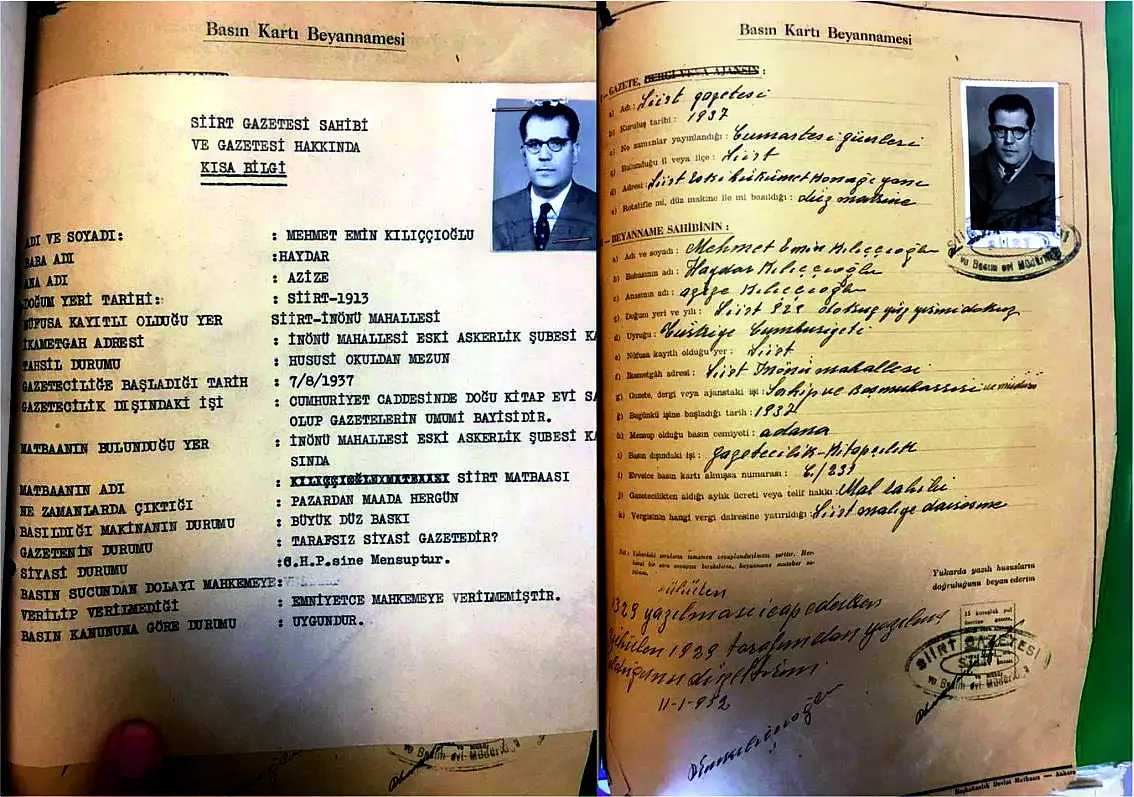 Basın Kartı Beyannamesi
SİİRT GAZETESİ SAHİBİ
VE GAZETESİ HAKKINDA
KISA BİLGİ
ADI VE SOYADI: : MEHMET EMİN KILIÇÇIOĞLU
BABA ADI :HAYDAR
ANA ADI : AZİZE
DOĞUM YERİ TARİHİ: : SİİRT-1913
NÜFUSA KAYITLI OLDUĞU YER SİİRT-İNÖNÜ MAHALLESİ
İKAMETGAH ADRESİ : İNÖNÜ MAHALLESİ ESKİ ASKERLİK ŞUBESİ
TAHSİL DURUMU : HUSUSİ OKULDAN MEZUN
GAZETECİLİĞE BAŞLADIĞI TARİH : 7/8/1937
GAZETECİLİK DIŞINDAKİ İŞİ : CUMHURİYET CADDESİNDE DOĞU KİTAP EVİ
OLUP GAZETELERİN UMUMİ BAYİSİDİR.
MATBAANIN BULUNDUĞU YER : İNÖNÜ MAHALLESİ ESKİ ASKERLİK ŞUBESİ
SINDA
MATBAANIN ADI : SİİRT MATBAASI
NE ZAMANLARDA ÇIKTIĞI : PAZARDAN MAADA HERGÜN
BASILDIĞI MAKİNANIN DURUMU : BÜYÜK DÜZ BASKI
GAZETENİN DURUMU : TARAFSIZ SİYASİ GAZETEDİR?
SİYASİ DURUMU :C.H.P.sine Mensuptur.
BASIN SUCUNDAN DOLAYI MAHKEMEYE:
VERİLİP VERİLMEDİĞİ : EMNİYETCE MAHKEMEYE VERİLMEMİŞTİR.
BASIN KANUNUNA GÖRE DURUMU : UYGUNDUR.
Basın Kartı Beyannamesi
I — GAZETE, DERGİ VEYA AJANSIN :
a) Adı : Siirt gazetesi
b) Kuruluş tarihi : 1937
c) Ne zamanlar yayınlandığı : Cumartesi günleri
ç) Bulunduğu il veya ilçe : Siirt
d) Adresi : Siirt Eski hükümet Konağı yanı
e) Rotatifle mi, düz makine ile mi basıldığı : düz makine
II — BEYANNAME SAHİBİNİN :
a) Adı ve soyadı : Mehmet Emin Kılıççıoğlu
b) Babasının adı : Haydar Kılıççıoğlu
c) Anasının adı : azize Kılıççıoğlu
ç) Doğum yeri ve yılı : Siirt 329 dokuz yüz yirmi dokuz
d) Uyruğu : Türkiye Cumhuriyeti
e) Nüfusa kayıtlı olduğu yer : Siirt
f) İkametgâh adresi : Siirt İnönü mahallesi
g) Gazete, dergi veya ajanstaki işi : Sahip ve Başmuharriri ve müdürü
ğ) Bugünkü işine başladığı tarih : 1937
h) Mensup olduğu basın cemiyeti : adana
ı) Basın dışındaki işi : gazetecilik-Kitapçılık
i) Evvelce basın kartı almışsa numarası : C/231
j) Gazetecilikten aldığı aylık ücreti veya telif hakkı : Mal sahibi
k) Vergisinin hangi vergi dairesine yatırıldığı : Siirt maliye dairesine
Yukarda yazılı hususların
doğruluğunu beyan ederim
1329 yazılması icap ederken
1929 tarafımdan yazılmış
11-1-952
SİİRT GAZETESİ
SİİRT
ve Basım evi Müdürlüğü
Başbakanlık Devlet Matbaası — Ankara